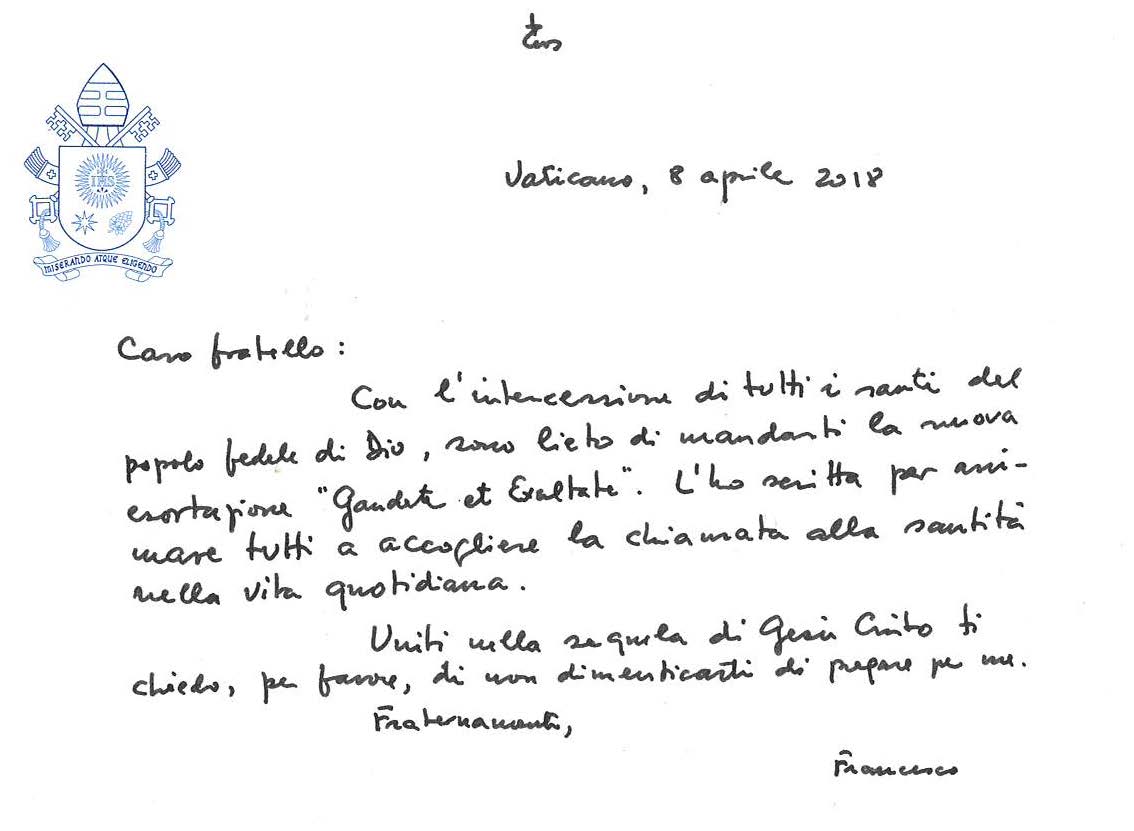 IHS
MISERANDO ATQUE ELIGENDO
Vaticano, 8 aprile 2018
Caro fratello:
Con l'intercessione di tutti i santi del
popolo fedele di Dio, sono lieto di mandarti la nuova
esortazione "Gaudete et Exultate". L'ho scritta per ani-
mare tutti a accogliere la chiamata alla santità
nella vita quotidiana.
Uniti nella sequela di Gesù Cristo ti
chiedo, per favore, di non dimenticarti di pregare per me.
Fraternamente,
Francesco